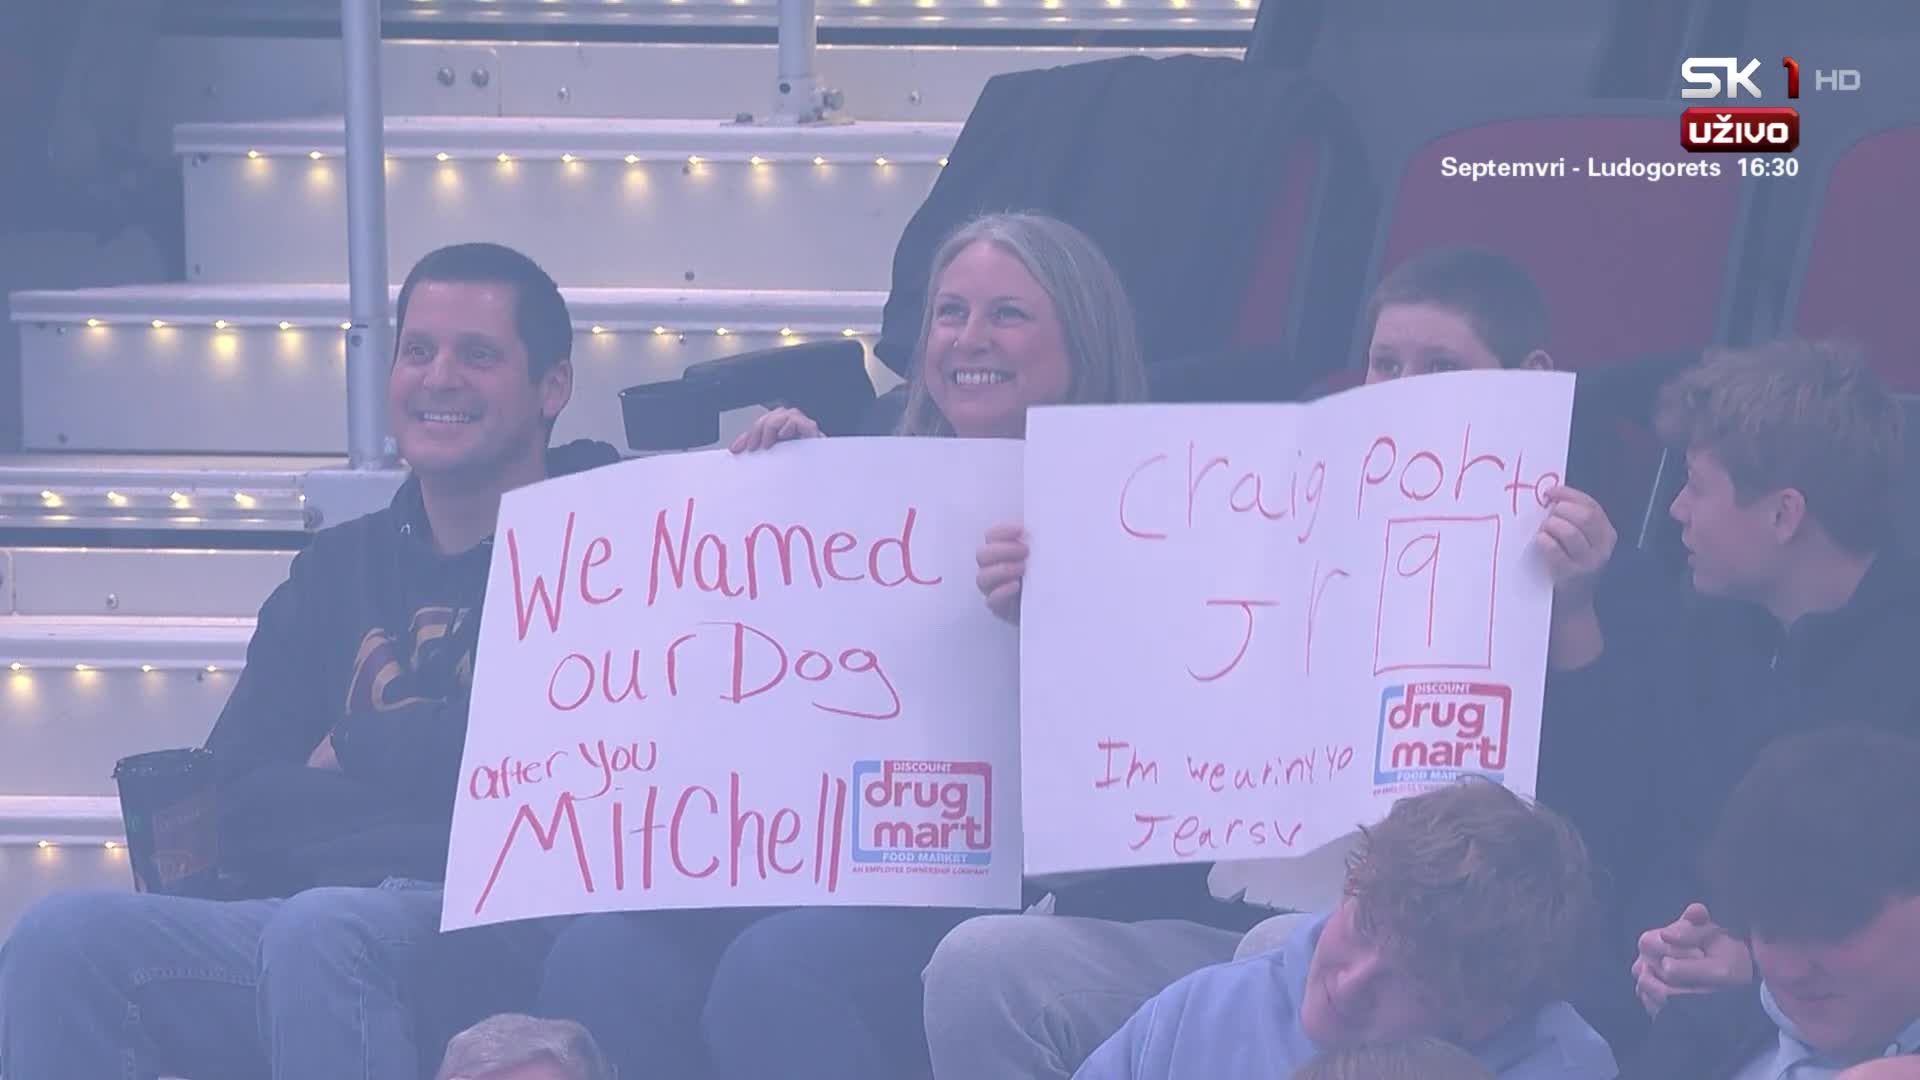 SK 1 HD
UŽIVO
Septemvri - Ludogorets 16:30
We Named
our Dog
after you
Mitchell
DISCOUNT
drug
mart
FOOD MARKET
AN EMPLOYEE OWNERSHIP COMPANY
Craig Porte
Jr 9
Im weariny yo
Jearsv
DISCOUNT
drug
mart
FOOD MAR